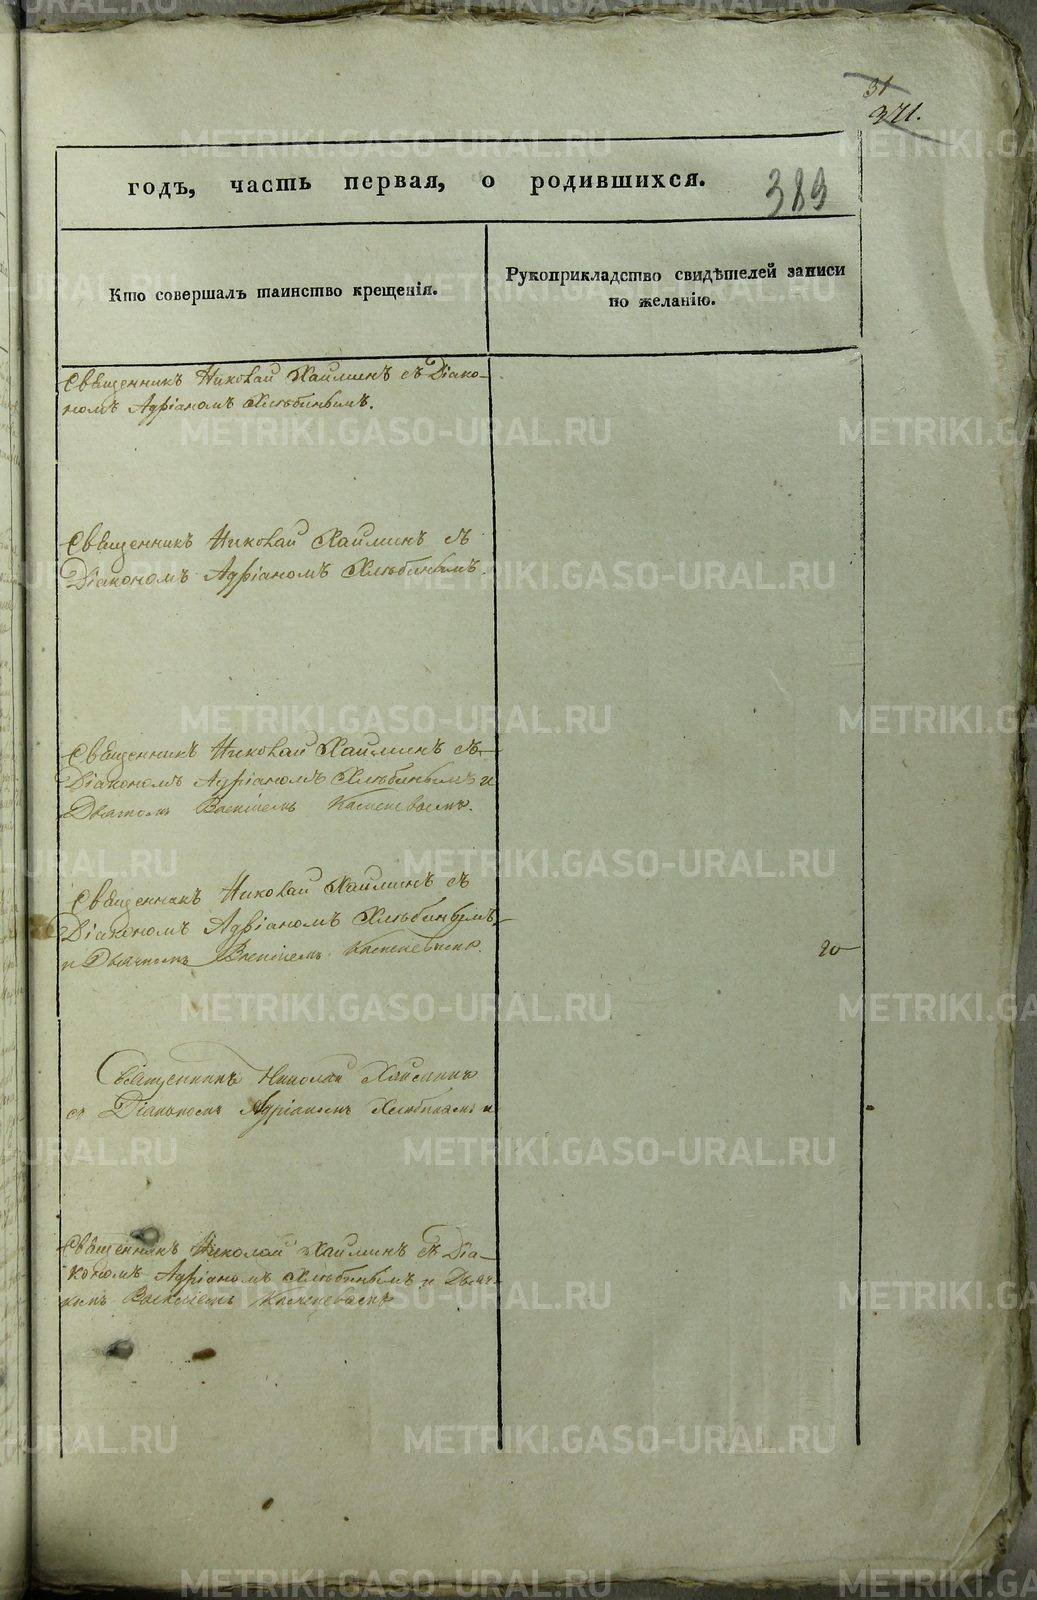 31
371.
годъ, часть первая, о родившихся.
389
Кто совершалъ таинство крещенія.
Рукоприкладство свидѣтелей записи
по желанію.
Священникъ Николай Хаиминъ съ Діако-
номъ Адріаномъ Хлюбинымъ.
Священникъ Николай Хаиминъ съ
Діакономъ Адріаномъ Хлюбинымъ.
Священникъ Николай Хаиминъ съ
Діакономъ Адріаномъ Хлюбинымъ и
Дьячкомъ
Священникъ Николай Хаиминъ съ
Діакономъ Адріаномъ Хлюбинымъ,
и Дьячкомъ
20
Священникъ Николай Хаиминъ
съ Діакономъ Адріаномъ Хлюбинымъ и
Священникъ Николай Хаиминъ съ Діа-
кономъ Адріаномъ Хлюбинымъ и Дьяч-
комъ
METRIKI.GASO-URAL.RU